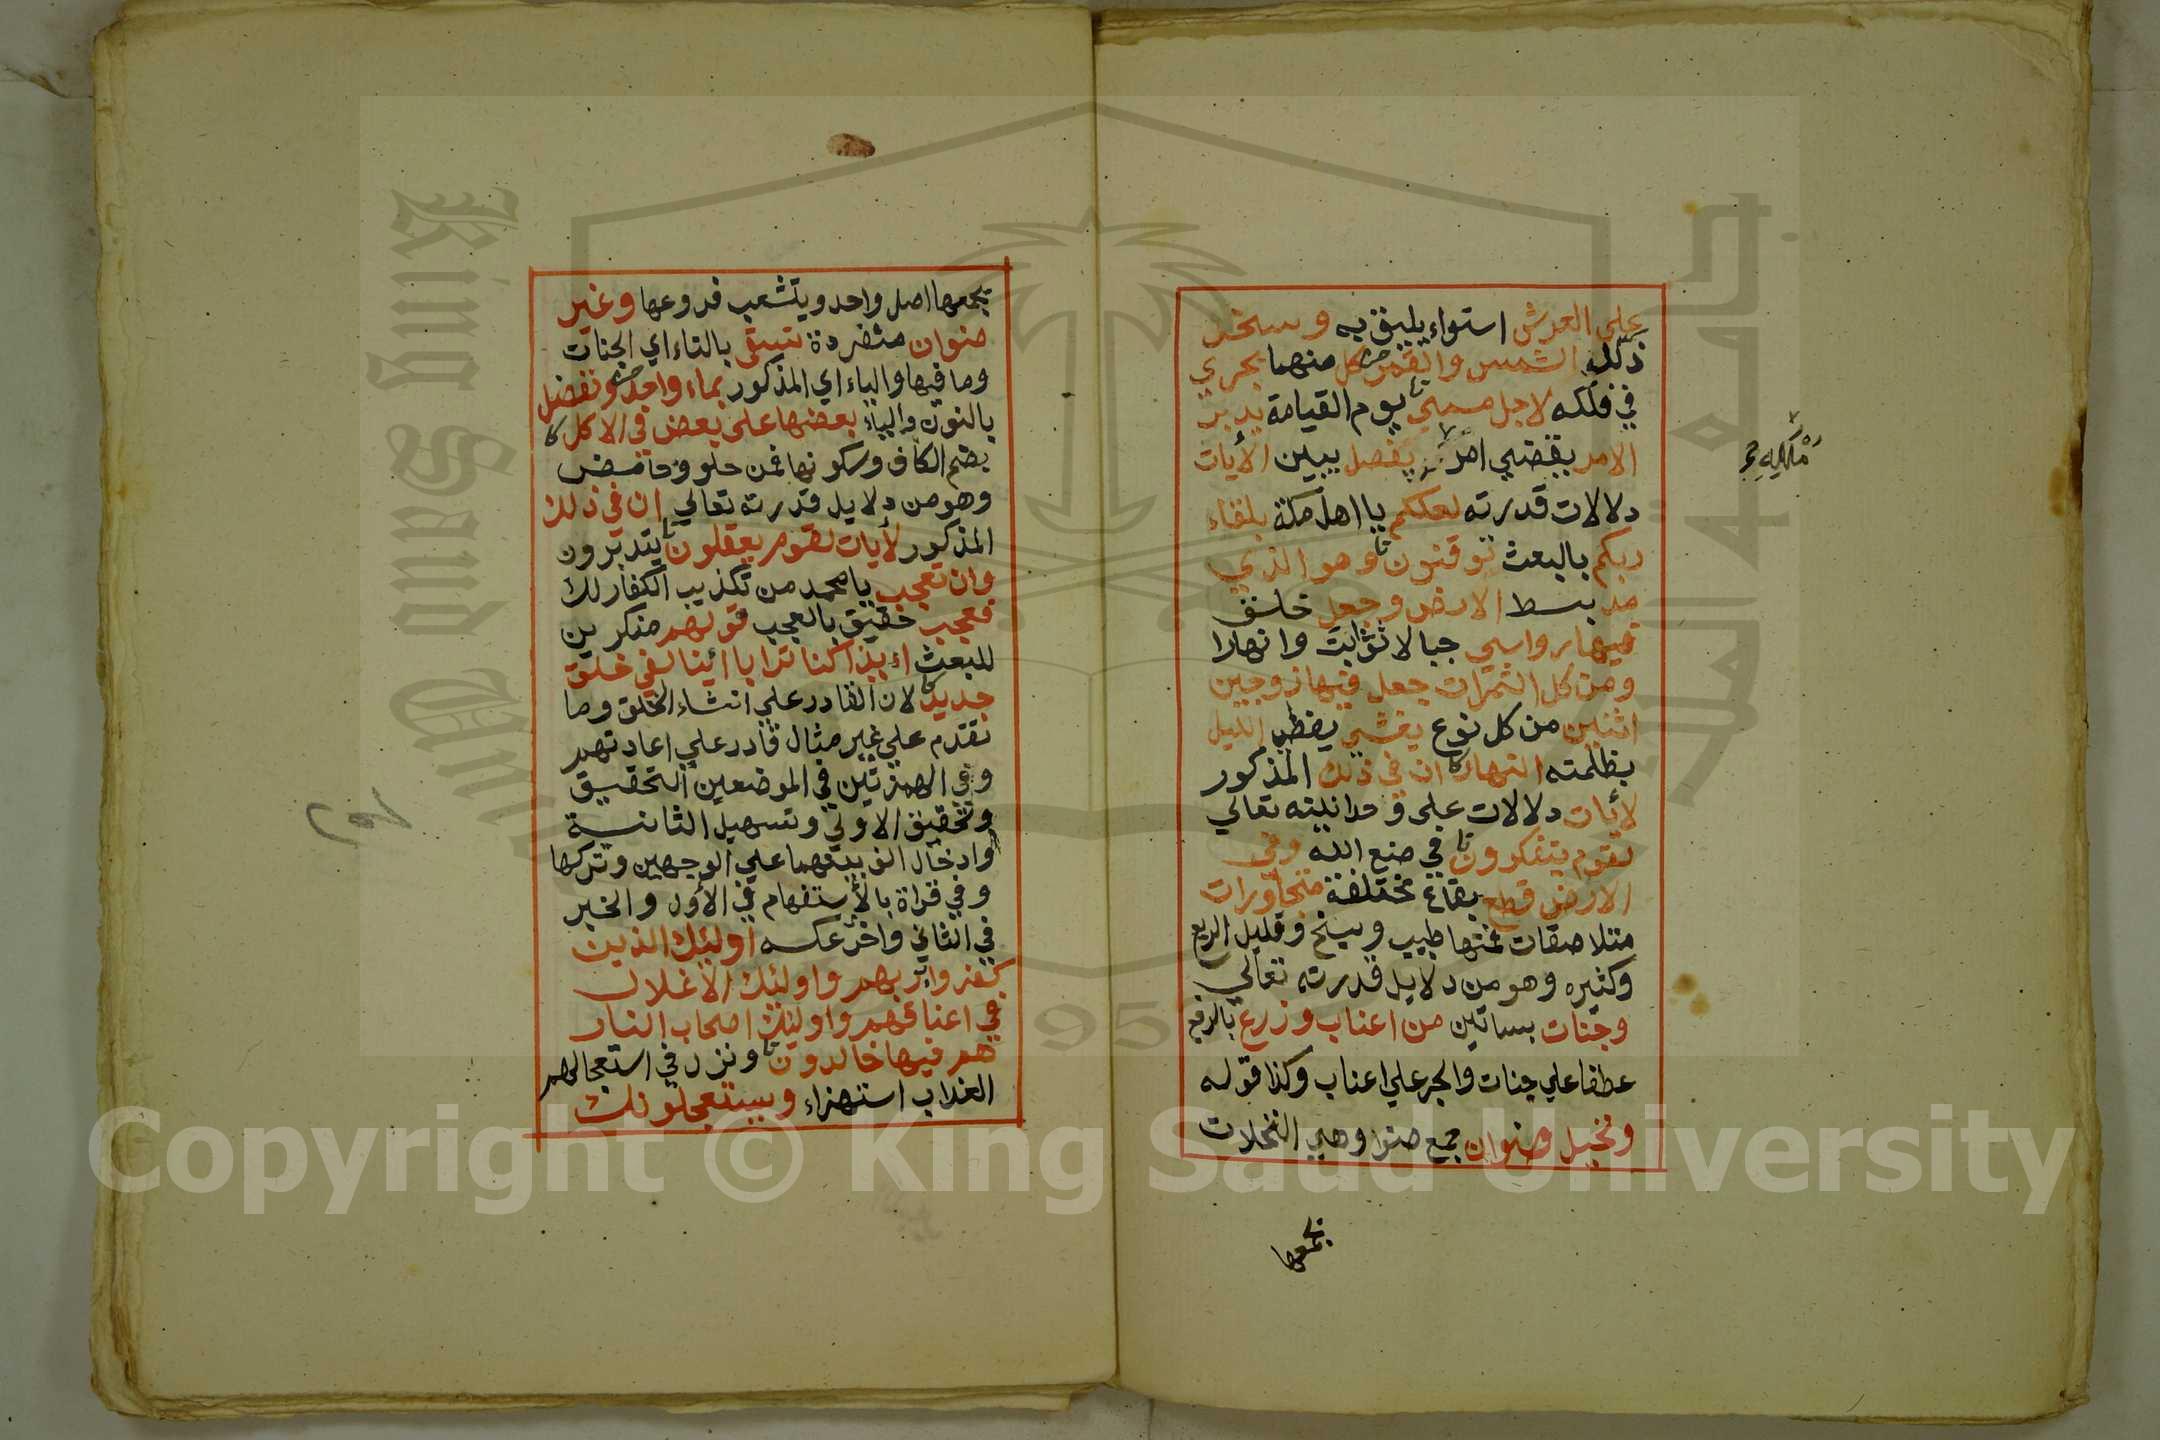 علي العرش استواء يليق به وسخر
ذلل الشمس والقمر كل منهما يجري
في فلكه لاجل مسمي يوم القيامة يدبر
الامر يقضي امر يفصل يبين الأيات
دلالات قدرته لعلكم يا اهل مكة بلقاء
ربكم بالبعث توقنون وهو الذي
مد بسط الارض وجعل خلق
فيها رواسي جبالا ثوابت وانهارا
ومن كل الثمرات جعل فيها زوجين
اثنين من كل نوع يغشي يغطي الليل
بظلمته النهار ان في ذلك المذكور
لأيات دلالات علي وحدانيته تعالي
لقوم يتفكرون في صنع الله وفي
الارض قطع بقاع مختلفة متجاورات
متلاصقات فمنها طيب وسبخ وقليل الريع
وكثيره وهو من دلايل قدرته تعالي
وجنات بساتين من اعناب وزرع بالرفع
عطفا علي جنات والجر علي اعناب وكذا قوله
ونخيل صنوان جمع صنو وهي النخلات
يجمعها
يجمعها اصل واحد ويتشعب فروعها وغير
صنوان منفردة تسقي بالتاء اي الجنات
وما فيها والياء اي المذكور بماء واحد ونفضل
بالنون والياء بعضها علي بعض في الاكل
بضم الكاف وسكونها فمن حلو وحامض
وهو من دلايل قدرته تعالي ان في ذلك
المذكور لأيات لقوم يعقلون يتدبرون
وان تعجب يا محمد من تكذيب الكفار لك
فعجب حقيق بالعجب قولهم منكرين
للبعث ائذا كنا ترابا أئنا لفي خلق
جديد لان القادر علي انشاء الخلق وما
تقدم علي غير مثال قادر علي اعادتهم
وفي الهمزتين في الموضعين التحقيق
وتحقيق الاولي وتسهيل الثانية
وادخال الف بينهما علي الوجهين وتركها
وفي قراة بالأستفهام في الأول والخبر
في الثاني واخر عكسه اوليك الذين
كفروا بربهم واوليك الاغلال
في اعناقهم واوليك اصحاب النار
هم فيها خالدون ونزل في استعجالهم
العذاب استهزاء ويستعجلونك
King Saud University
جامعة الملك
1957
Copyright © King Saud University